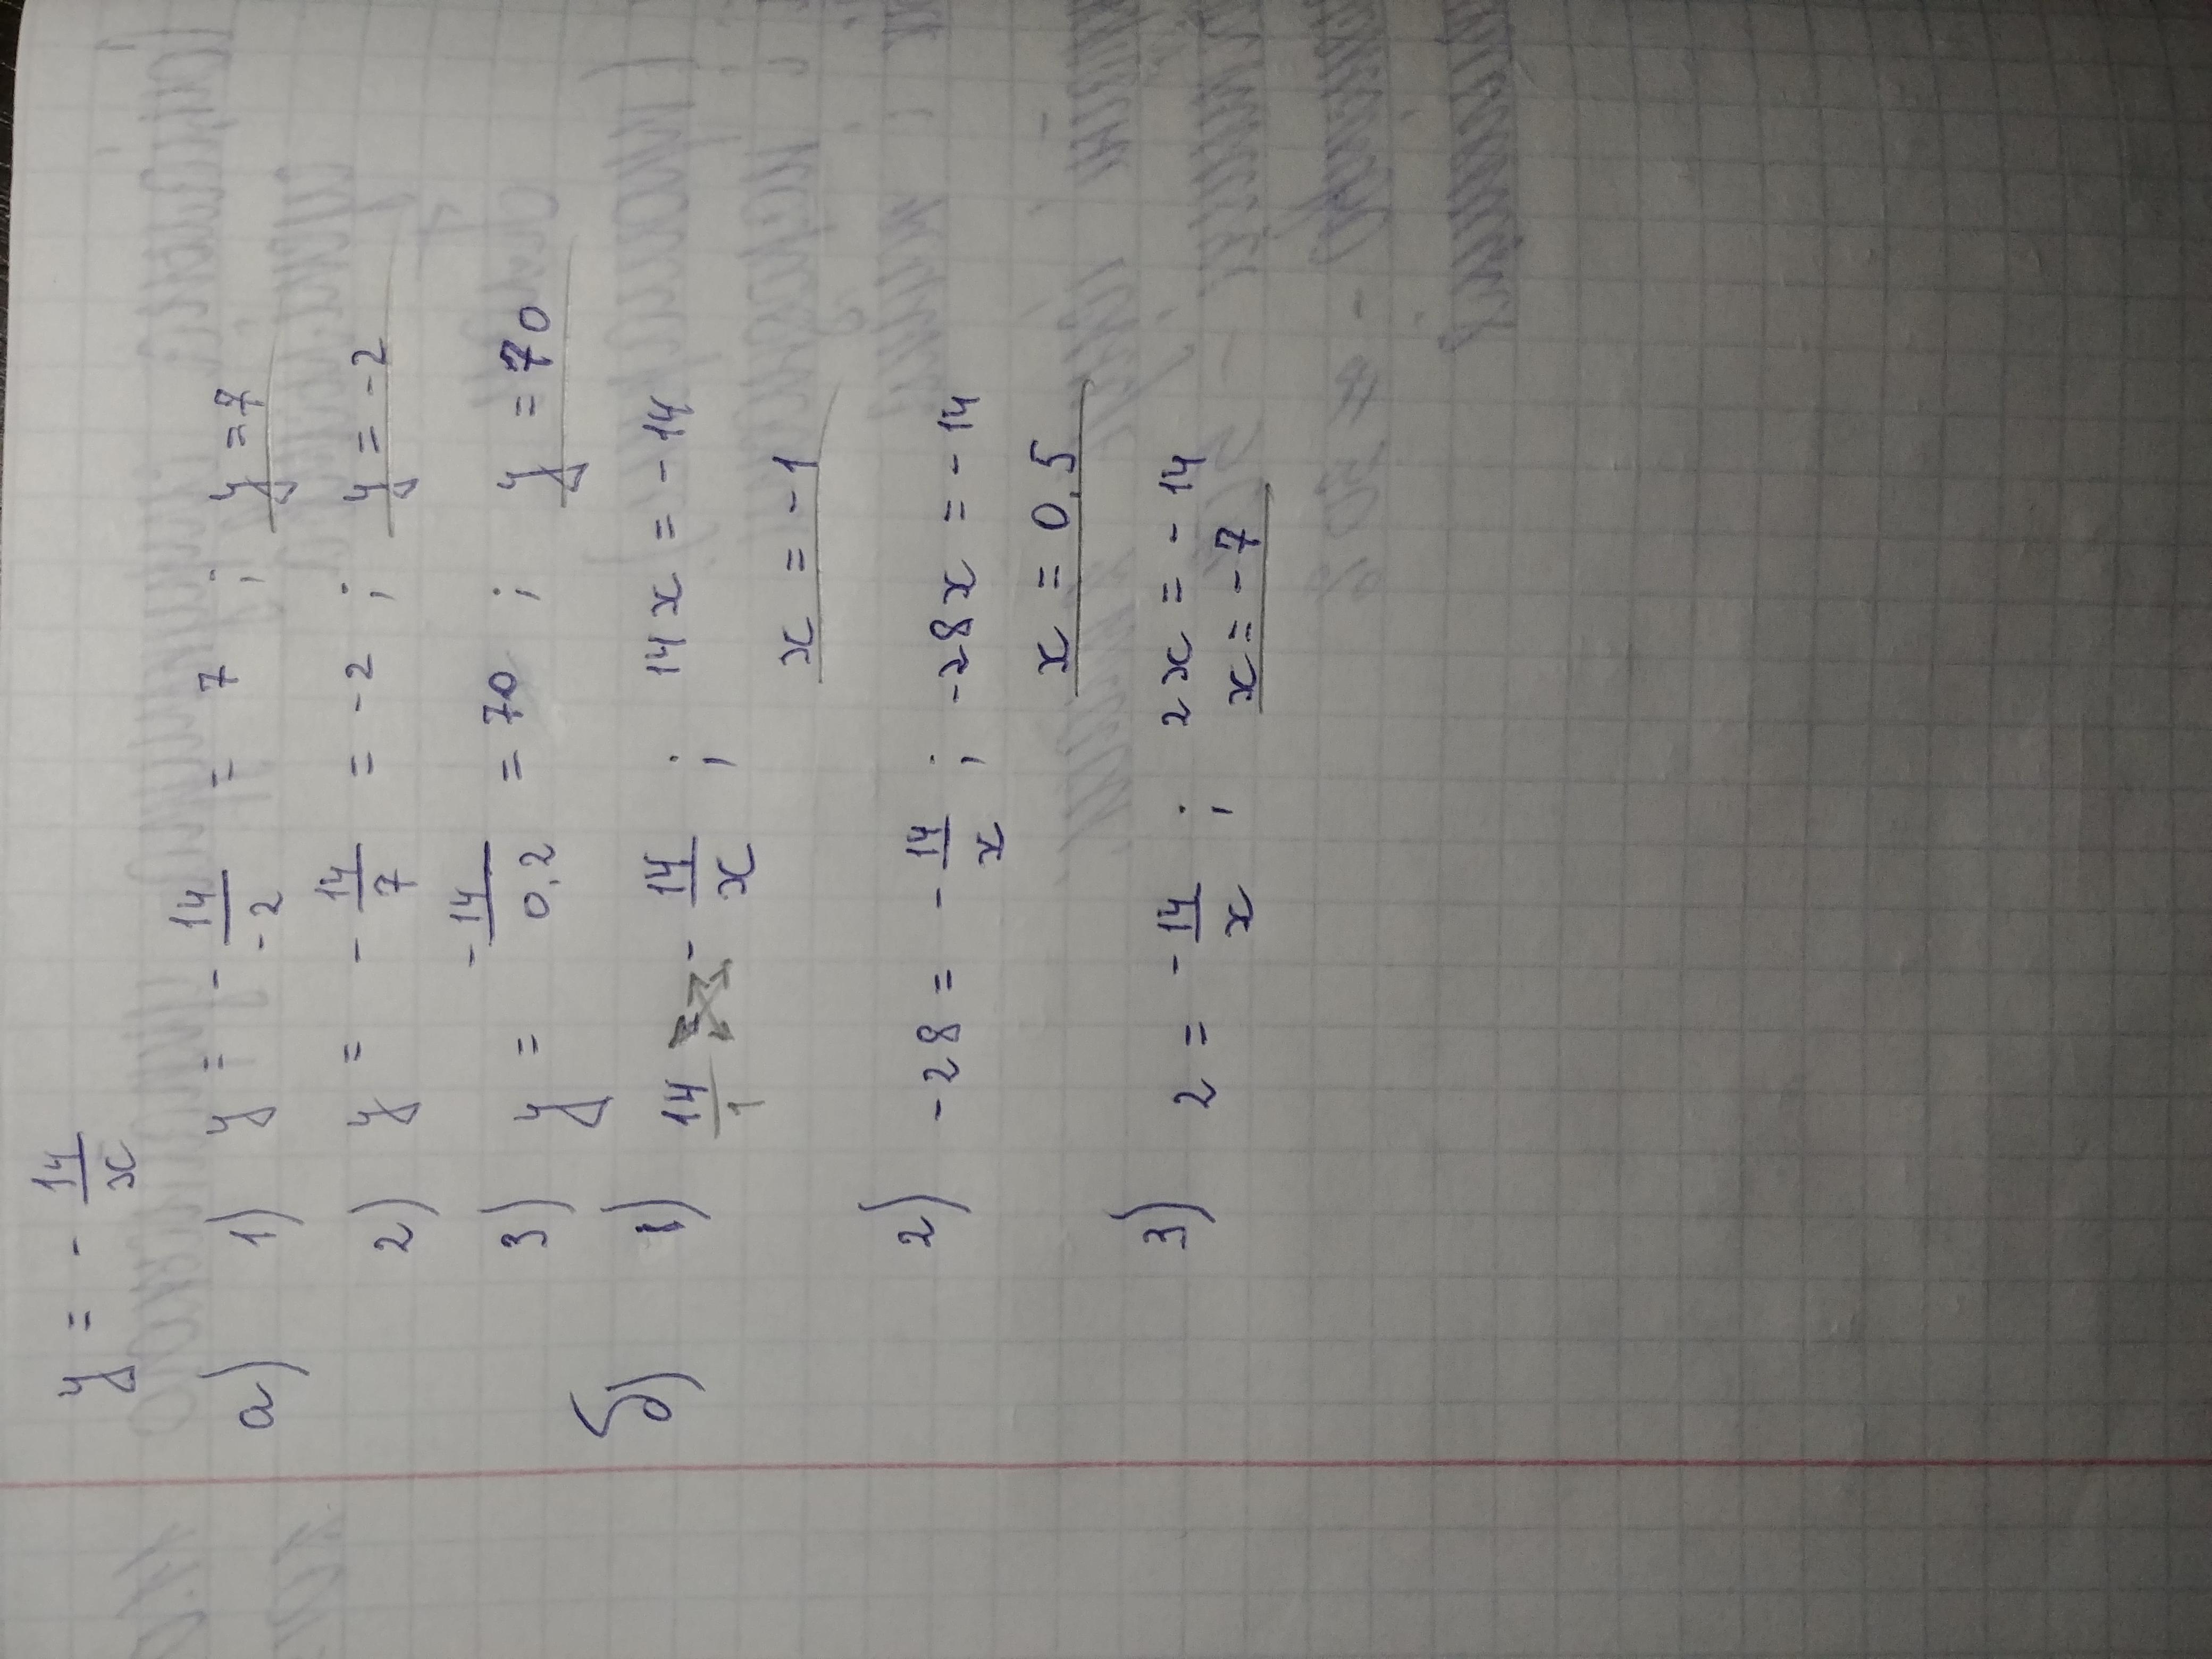 y = - 14/x
а) 1) y = - 14/-2 = 7 ; y = 7
2) y = - 14/7 = -2 ; y = -2
3) y = - 14/0,2 = 70 ; y = 70
б) 1) 14/1 = - 14/x ; 14x = -14
x = -1
2) -28 = - 14/x ; -28x = -14
x = 0,5
3) 2 = - 14/x ; 2x = -14
x = -7